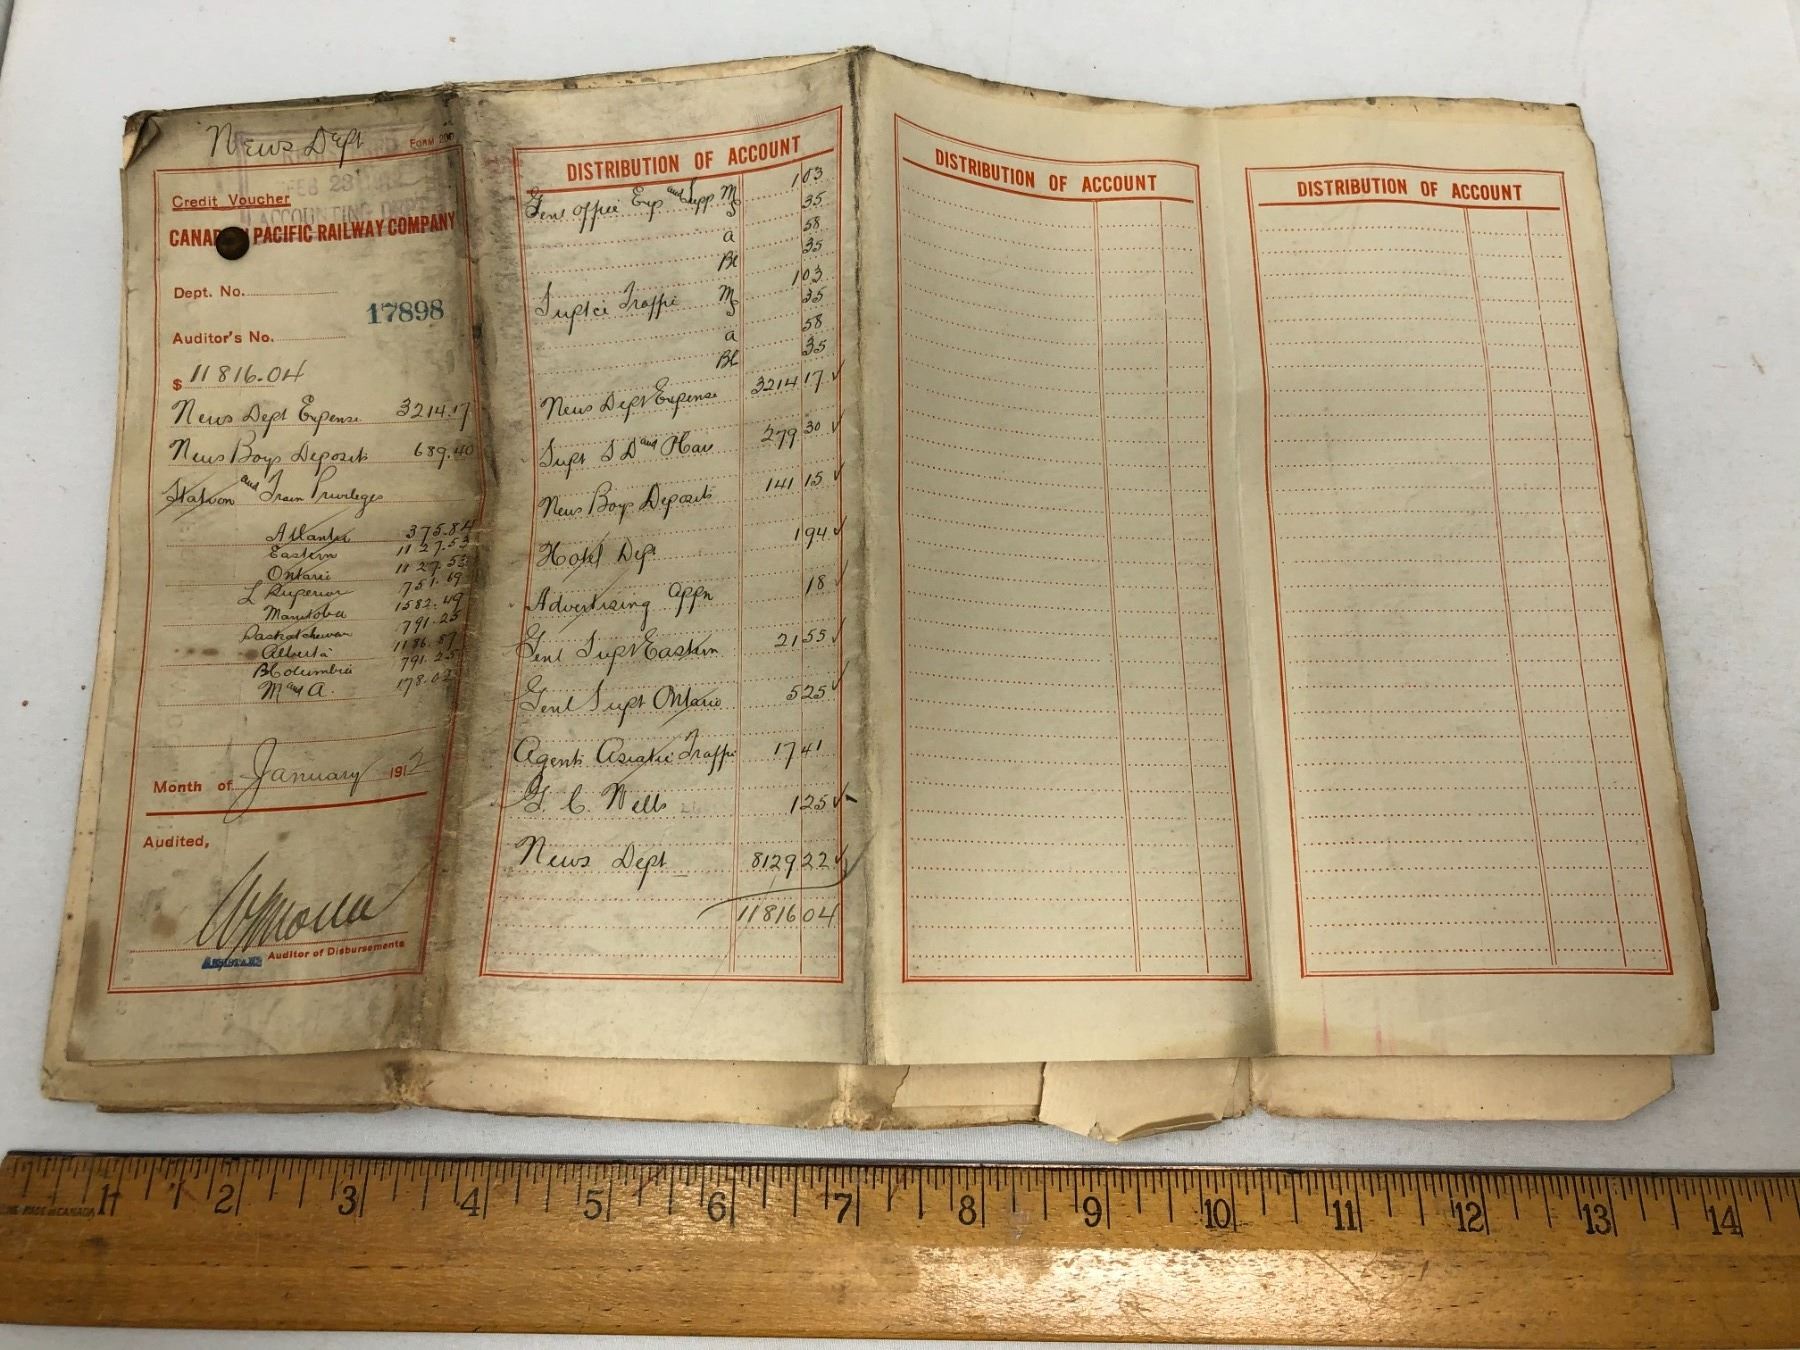 News Dept
FORM 200
FEB 23
ACCOUNTING DEPT
Credit Voucher
CANAD N PACIFIC RAILWAY COMPANY
Dept. No.
17898
Auditor's No.
$ 11816.04
News Dept Expense 3214.17
News Boys Deposits 689.40
Station and Train Privileges
Atlantic 375.84
Eastern 1127.53
Ontario 1127.53
L Superior 751.69
Manitoba 1582.49
Saskatchewan 791.25
Alberta 1186.87
B Columbia 791.25
M and A. 178.02
Month of January 1912
Audited,
ASSISTANT Auditor of Disbursements
DISTRIBUTION OF ACCOUNT
Genl Office Exp and Supp M 103
S 35
a 58
Bl 35
Suptce Traffic M 103
S 35
a 58
Bl 35
News Dept Expense 3214 17 ✓
Supt S D and Par 279 30 ✓
News Boys Deposits 141 15 ✓
Hotel Dept 1 94 ✓
Advertising appn 18 ✓
Genl Supt Eastern 21 55 ✓
Genl Supt Ontario 5 25 ✓
Agents Asiatic Traffic 17 41
G C Wells 1 25 ✓
News Dept 8129 22 ✓
11816 04
DISTRIBUTION OF ACCOUNT
DISTRIBUTION OF ACCOUNT
MADE IN CANADA
1 2 3 4 5 6 7 8 9 10 11 12 13 14